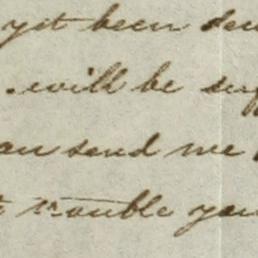 yet been
will be
send me
trouble you